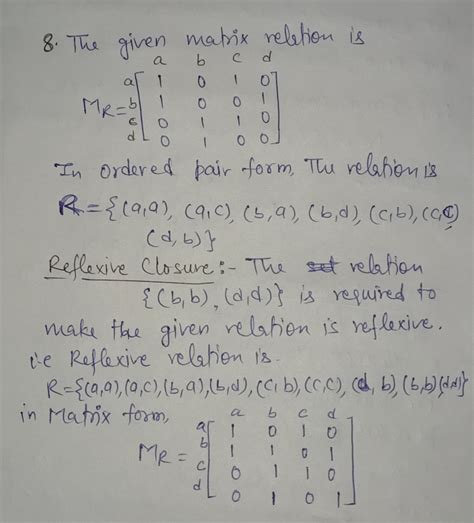 8. The given matrix relation is
a b c d
a[ 1 0 1 0 ]
MR = b 1 0 0 1
c 0 1 1 0
d 0 1 0 0
In ordered pair form, The relation is
R = {(a,a), (a,c), (b,a), (b,d), (c,b), (c,c)
(d,b)}
Reflexive Closure :- The set relation
{(b,b), (d,d)} is required to
make the given relation is reflexive.
i.e Reflexive relation is.
R={(a,a),(a,c),(b,a),(b,d),(c,b),(c,c),(d,b),(b,b)(d,d)}
in Matrix form,
a b c d
a 1 0 1 0
b 1 1 0 1
MR = c 0 1 1 0
d 0 1 0 1